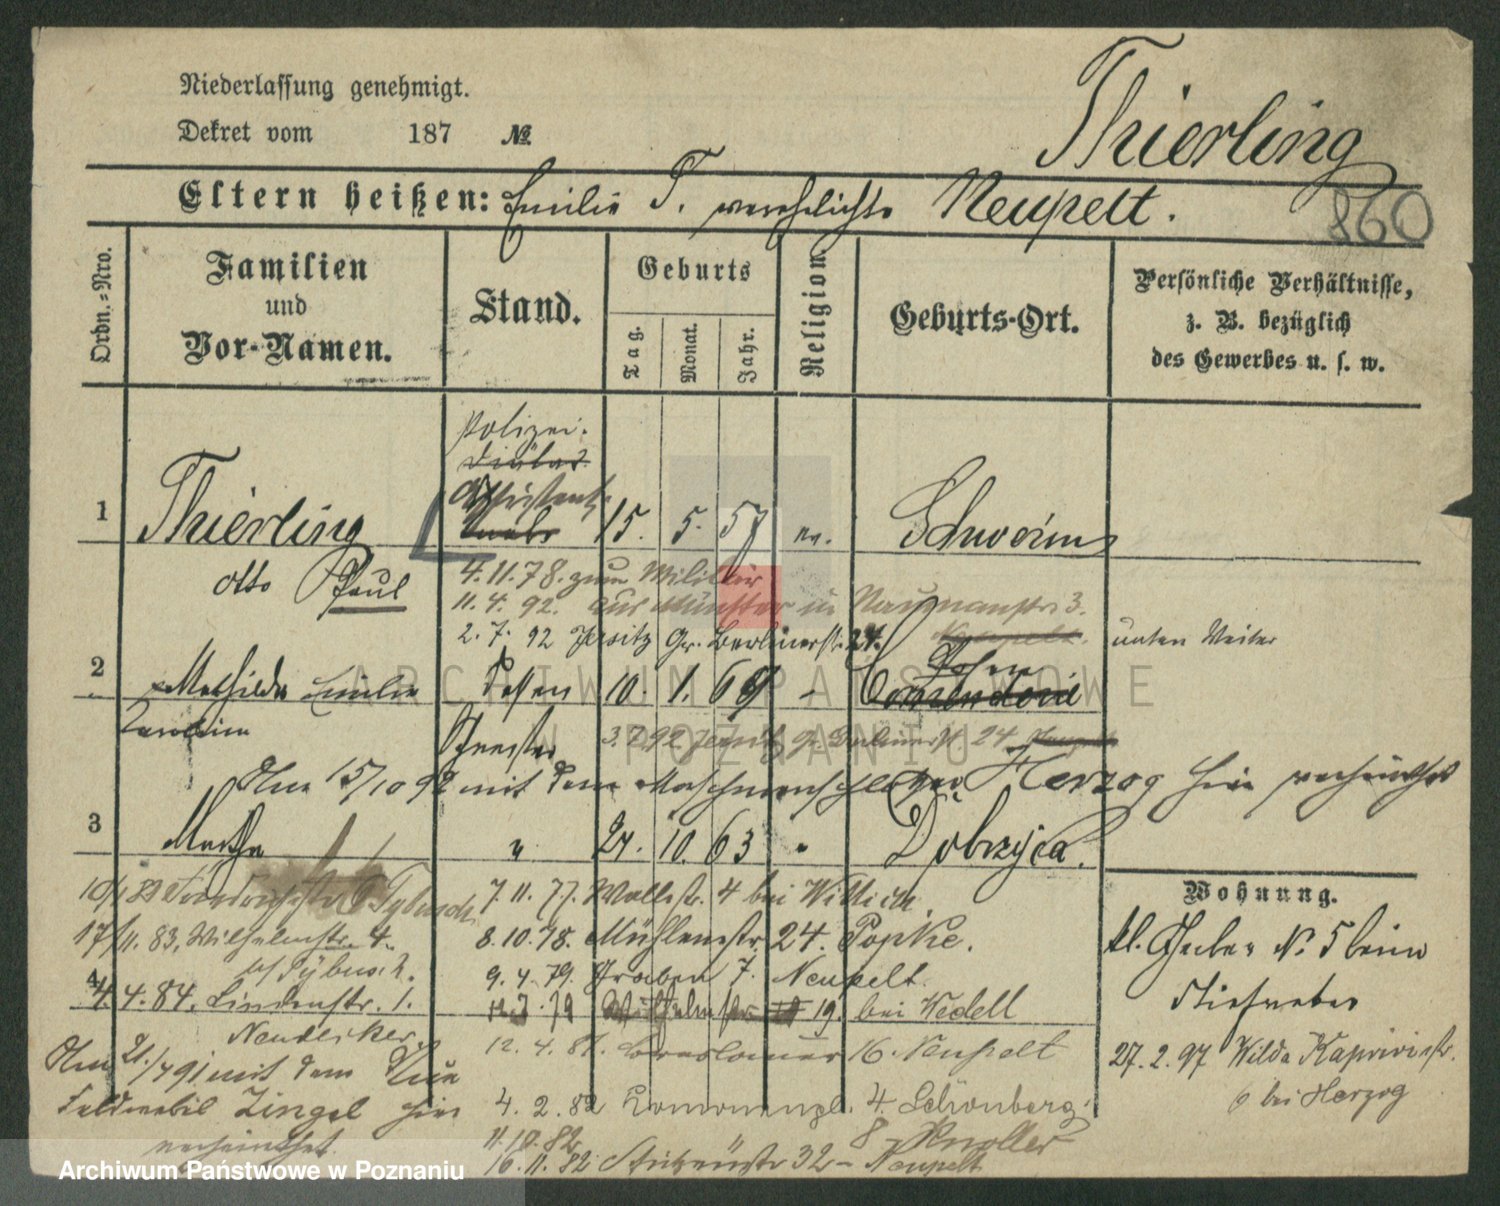 Niederlassung genehmigt.
Dekret vom 187 №
Thierling
Eltern heißen: Emilie T. verehelichte Neupelt.
860
Ordn.-Nro.
Familien
und
Vor-Namen.
Stand.
Geburts
Tag.
Monat.
Jahr.
Religion
Geburts-Ort.
Persönliche Verhältnisse,
z. B. bezüglich
des Gewerbes u. s. w.
Polizei-
Diätar
Assistent
1 Thierling Knabe 15. 5. 57 ev. Schwerin
Otto Paul
4.11.78. zum Militär
11.4.92. aus Münster in Naumannstr. 3.
2.7.92 Jersitz Gr. Berlinerstr. 24. unten Weiter
Posen
2 Mathilde Emilie dessen 10. 1. 69 -
Karoline Schwester 3.7.92 Jersitz Gr. Berlinerstr 24
Am 15/10 92 mit dem Maschinenschlosser Herzog hier verheirathet
3 Martha " 27. 10. 63 " Dobrzyca.
7.11.77. Wallstr. 4 bei Wittich.
17/11.83, Wilhelmstr. 4. 8.10.78. Mühlenstr. 24. Popke.
b/ Tybusch. 9.4.79. Graben 7. Neupelt.
4
4.4.84. Lindenstr. 1. Wilhelmstr. 19. bei Wedell
12.4.81. Breslauer 16. Neupelt
Am 21./7 91 mit dem
Feldwebel Zingel hier
verheirathet.
4.2.82 4. Schönberg
11.10.82 8 - Knoller
16.11.82 Schützenstr 32 - Neupelt
Wohnung.
kl. Gerber N. 5 beim
Stiefvater
27.2.97 Wilda Kaprivistr.
6 bei Herzog
ARCHIWUM PAŃSTWOWE
W POZNANIU
Archiwum Państwowe w Poznaniu